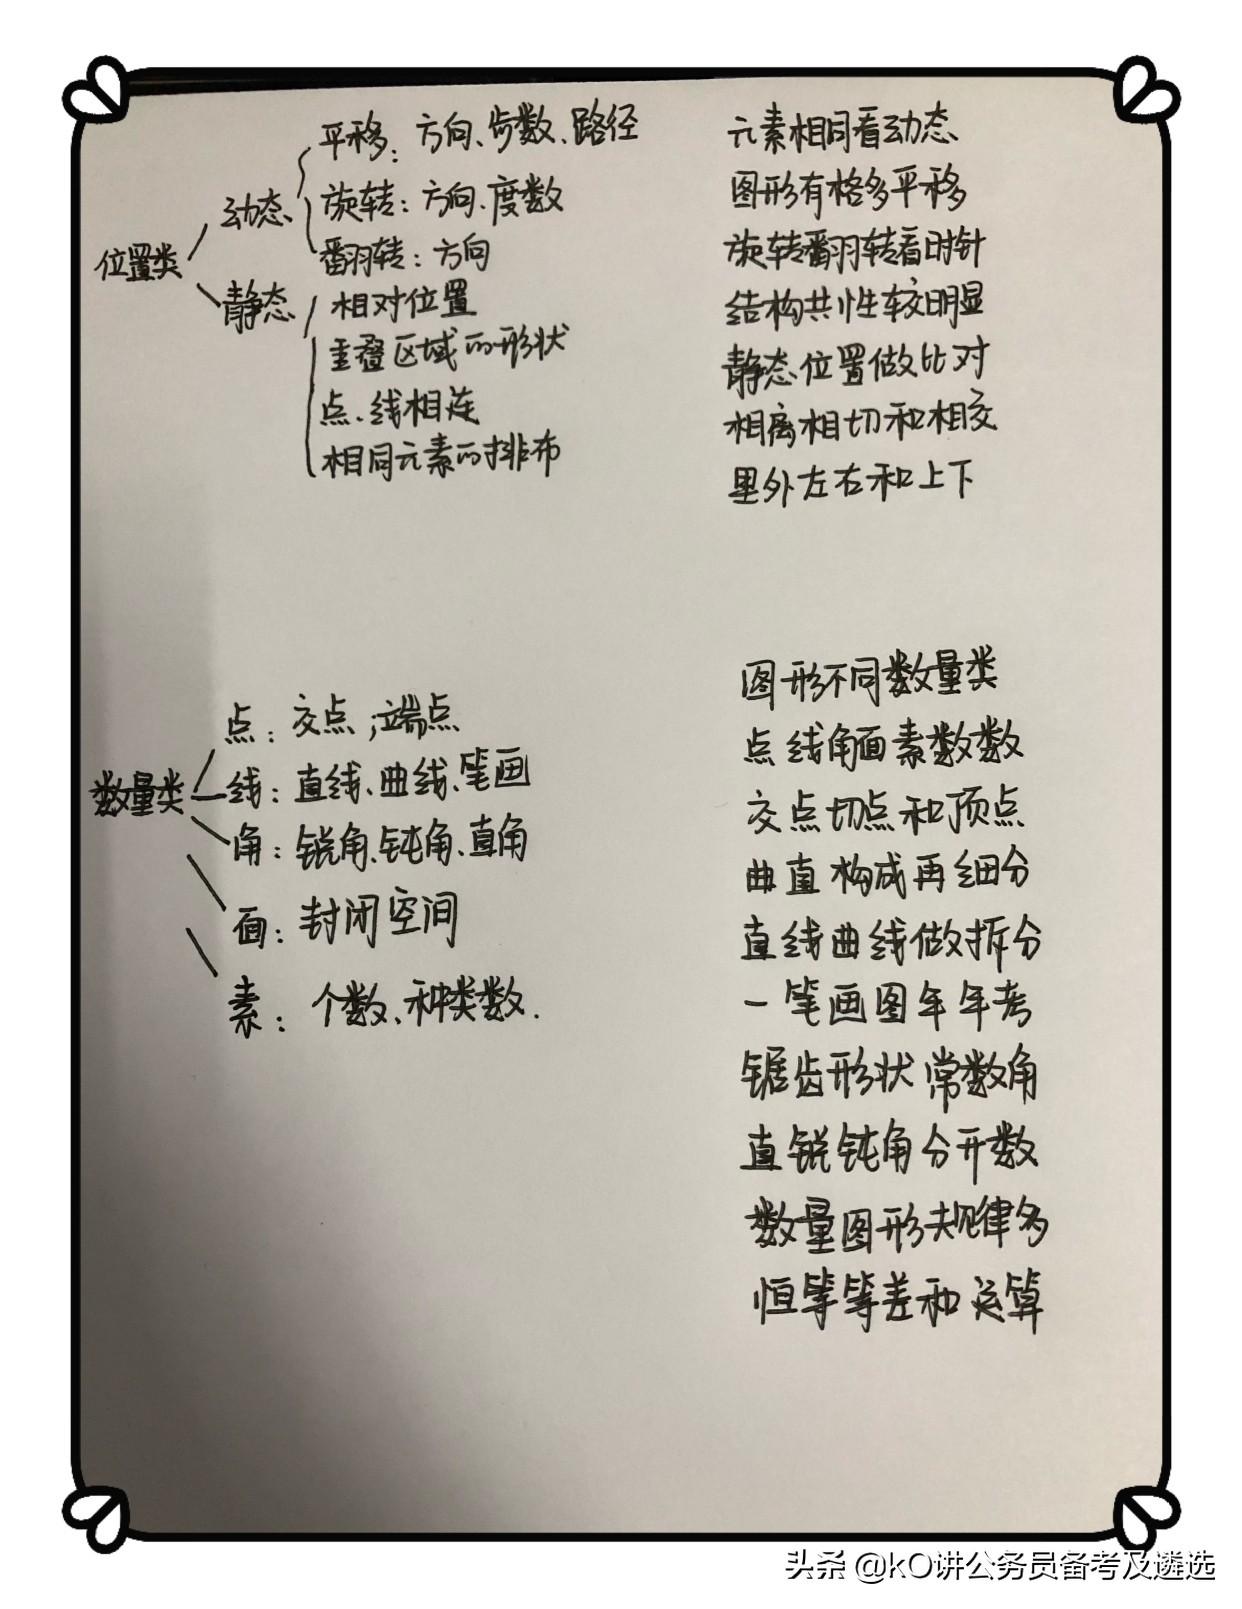 平移：方向、步数、路径
动态
旋转：方向、度数
翻转：方向
位置类
静态
相对位置
重叠区域的形状
点、线相连
相同元素的排布
元素相同看动态
图形有格多平移
旋转翻转看时针
结构共性较明显
静态位置做比对
相离相切和相交
里外左右和上下
点：交点，端点
数量类
线：直线、曲线、笔画
角：锐角、钝角、直角
面：封闭空间
素：个数、种类数.
图形不同数量类
点线角面素数数
交点切点和顶点
曲直构成再细分
直线曲线做拆分
一笔画图年年考
锯齿形状常数角
直锐钝角分开数
数量图形规律多
恒等等差和运算
头条 @kO讲公务员备考及遴选